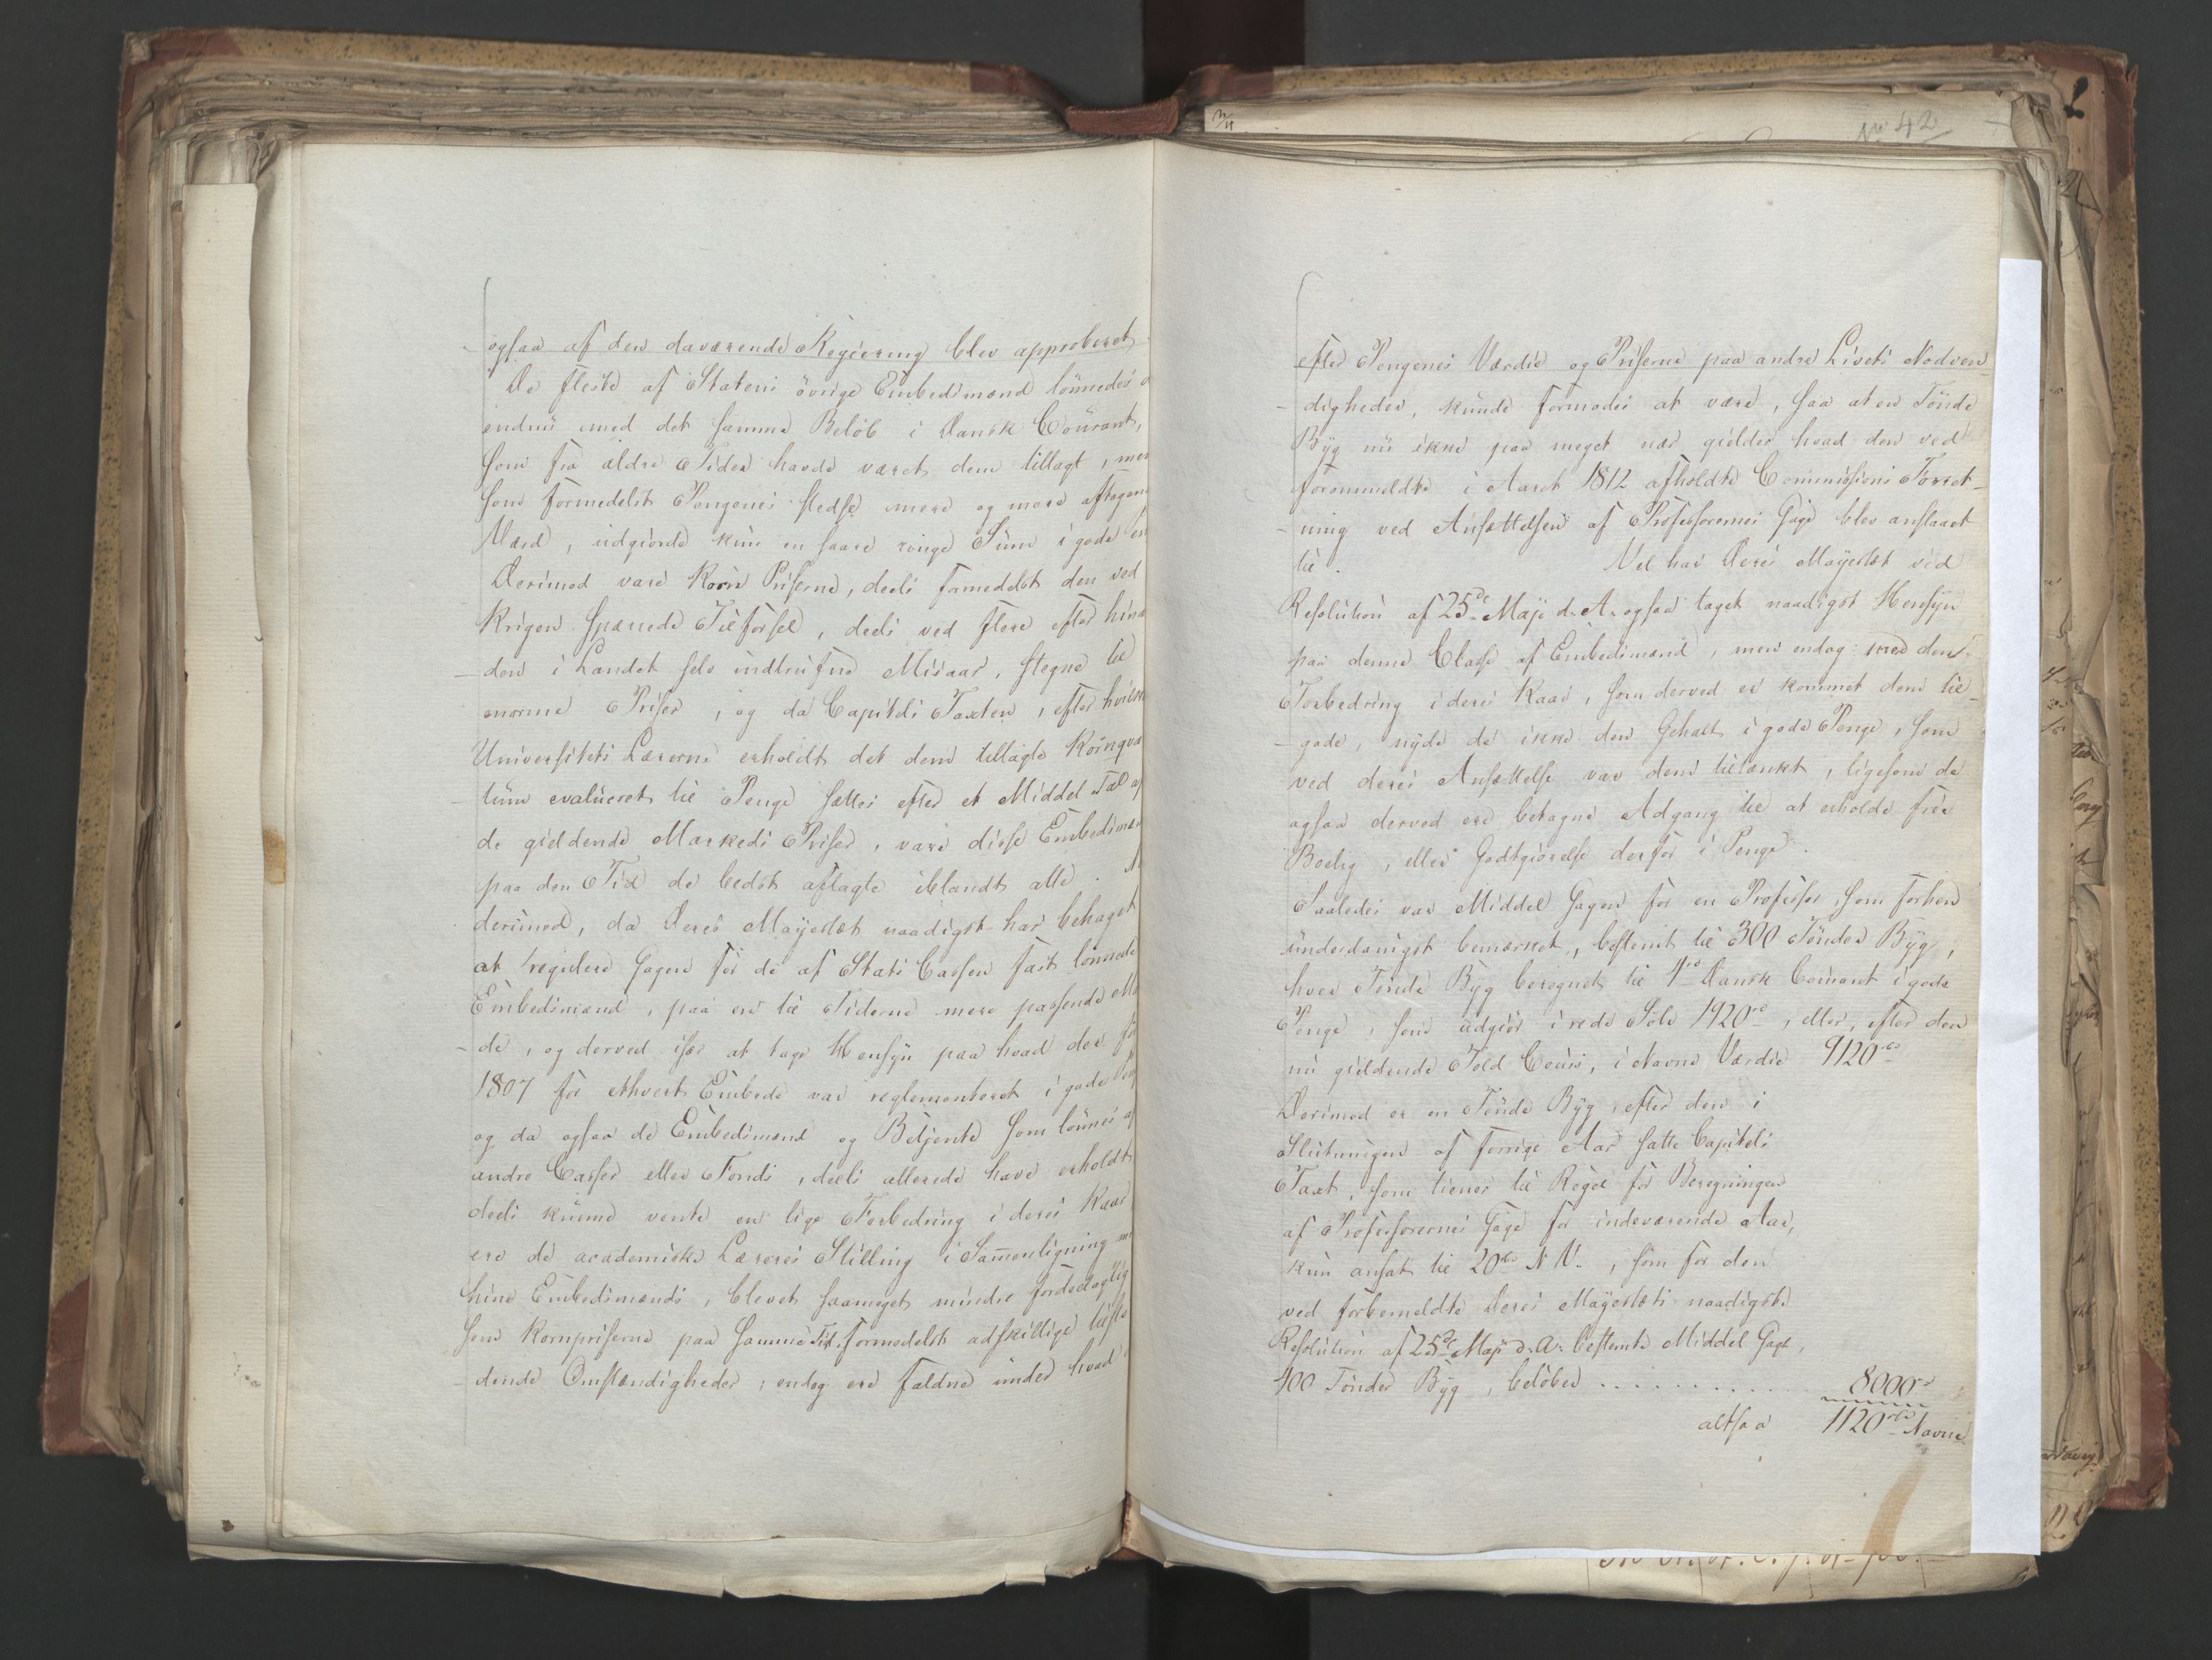 No 42
ogsaa af den daværende Regiering blev approberet
De fleste af Statens övrige Embedsmænd lönnedes
endnu med det samme Belöb i Dansk Courant,
som fra ældre Tider havde været dem tillagt, men
som formedelst Pengenes stedse mere og mere aftagende
Værd, udgiorde kun en saare ringe Sum i gode
Derimod vare Korn Priserne, deels formedelst den ved
Krigen spærrede Tilförsel, deels ved flere efter hinan
den i Landet selv indtrufne Misaar, stegne til
enorme Priser, og da Capitels Taxten, efter hvilken
Universitets Lærerne erholdt det dem tillagte Kornqvan
tum evalueret til Penge sættes efter et Middel Tal af
de gieldende Markeds Priser, vare disse Embedsmænd
paa den Tid de bedst aflagte iblandt alle.
derimod, da Deres Mayestæt naadigst har behaget
at regulere Gagen for de af Stats Cassen fast lönnede
Embedsmænd, paa en til Tiderne mere passende Maa
de, og derved især at tage Hensyn paa hvad der för
1807 for ethvert Embede var reglementeret i gode
og da ogsaa de Embedsmænd og Betjente som lönnes af
andre Casser eller Fonds, deels allerede have erholdt
deels kunne vente en lige Forbedring i deres Kaar
ere de academiske Læreres Stilling i Sam̄enligning
hine Embedsmænds, blevet saameget mindre fordeelagtig
som Kornpriserne paa samme Tid, formedelst adskillige tilstö
dende Omstændigheder, endog ere faldne under hvad
efter Pengenes Værdie og Priserne paa andre Livets Nödven
digheder, kunde formodes at være, saa at en Tönde
Byg nu ikke paa meget nær gielder hvad den ved
forommeldte i Aaret 1812 afholdte Commissions Forret-
ning ved Ansættelsen af Professorernes Gage blev anslaaet
til. Vel har Deres Mayestæt ved
Resolution af 25de Maji d. A. ogsaa taget naadigst Hensyn
paa denne Classe af Embedsmænd, men endog med den
Forbedring i deres Kaar, som derved er kommet dem til
gode, nyde de ikke den Gehalt i gode Penge, som
ved deres Ansættelse var dem tiltænkt, ligesom de
ogsaa derved ere betagne Adgang til at erholde frie
Boelig, eller Godtgiörelse derfor i Penge.
Saaledes var Middel Gagen for en Professor, som forhen
underdanigst bemærket, bestemt til 300 Tönder Byg,
hver Tönde Byg beregnet til 4rd Dansk Courant i gode
Penge, som udgiör i rede Sölv 1920rd, eller, efter den
nu gieldende Told Cours, i Navne Værdie 9120rd
Derimod er en Tönde Byg, efter den i
Slutningen af forrige Aar satte Capitels
Taxt, som tiener til Regel for Beregningen
af Professorernes Gage for indeværende Aar,
kun ansat til 20rd N. V., som for den
ved forbemeldte Deres Mayestæts naadigste
Resolution af 25de Maji d. A. bestemte Middel Gage,
400 Tönder Byg, belöber . . . . . . . . . . 8000rd
altsaa 1120rd Navne